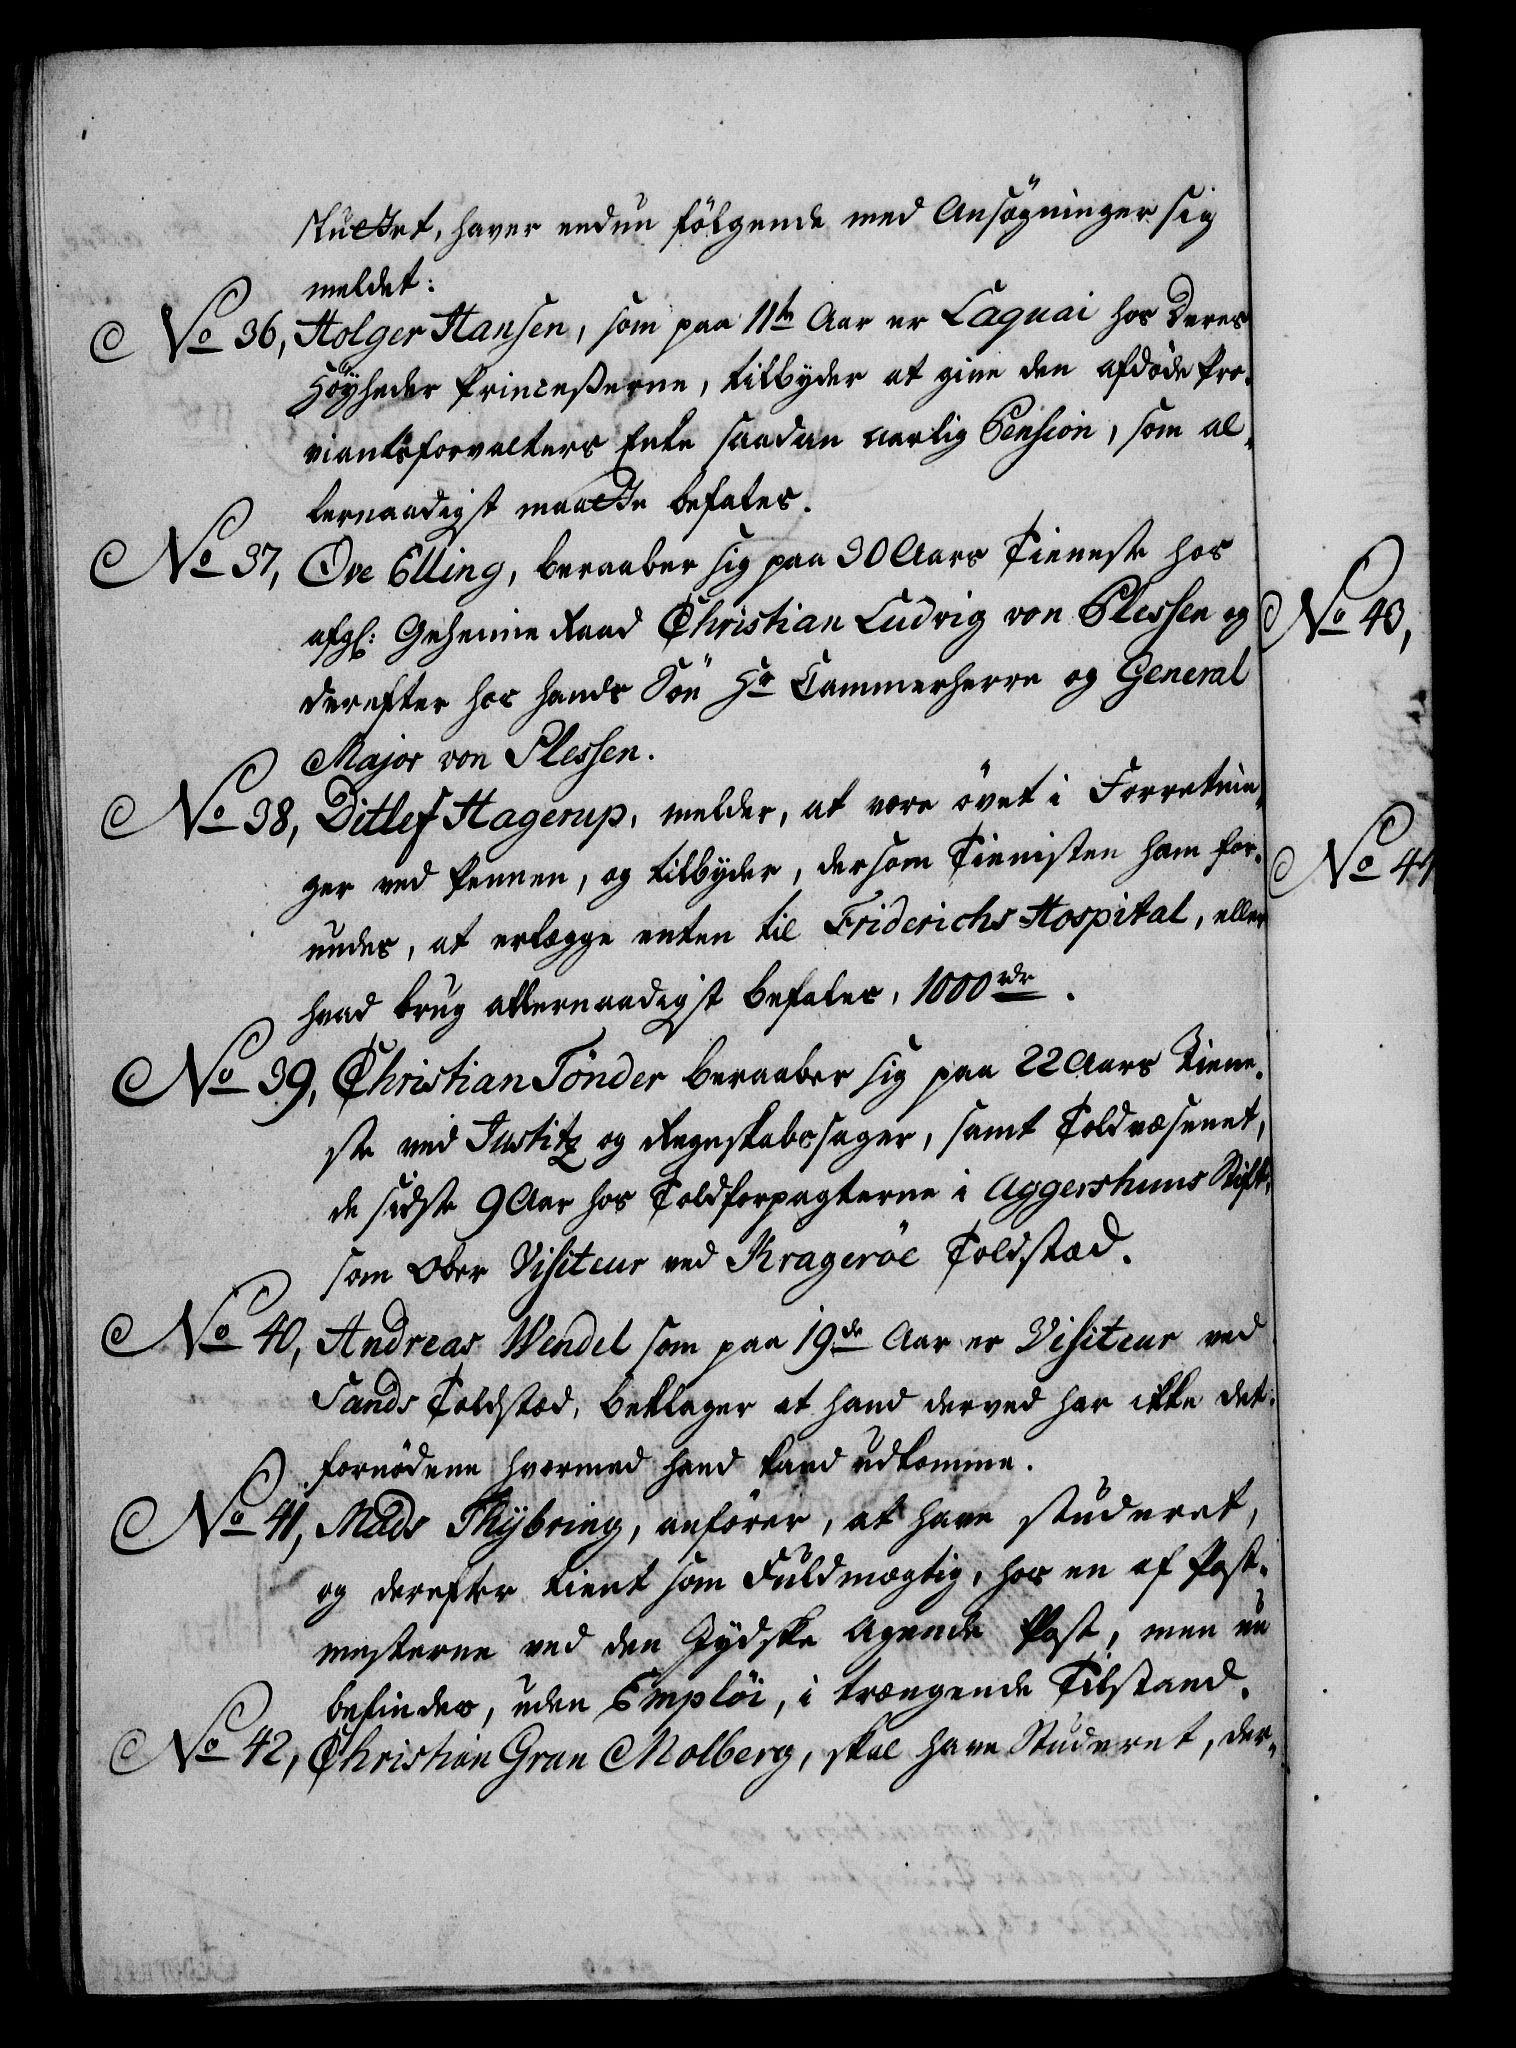 stuttet, haver endnu følgende med Ansøgninger sig
meldet:
No 36, Holger Hansen, som paa 11te Aar er Laquai hos Deres
Høyheder Princeßerne, tilbyder at give den afdøde Pro-
viantsforvalters Enke saadan aarlig Pension, som al-
lernaadigst maatte befales.
No 37, Ove Elling, beraaber sig paa 30 Aars Tieneste hos
afgl: Geheime Raad Christian Ludvig von Plessen og
derefter hos hands Sön Hr Cammerherre og General
Major von Plessen.
No 38, Ditlef Hagerup, melder, at være øvet i Forretnin-
ger ved Pennen, og tilbyder, dersom Tienisten ham for-
undes, at erlægge enten til Friderichs Hospital, eller
hvad brug allernaadigst befales, 1000 rdr.
No 39, Christian Tönder beraaber sig paa 22 Aars Tiene-
ste ved Justitz og Regnskabssager, samt Toldvæsenet,
de sidste 9 Aar hos Toldforpagterne i Aggershuus Stift,
som Ober Visiteur ved Krageröe Toldstæd.
No 40, Andreas Wendel som paa 19de Aar er Visiteur ved
Sands Toldstæd, beklager at hand derved har ikke det
fornødene hvormed hand kand udkomme.
No 41, Mads Thybring, anfører, at have studeret,
og derefter tient som Fuldmægtig, hos en af Post-
mesterne ved den Jydske agende Post, men nu
befindes, uden Emplöi, i trængende Tilstand.
No 42, Christian Gran Molberg, skal have Studeret, der-
No 43,
No 44